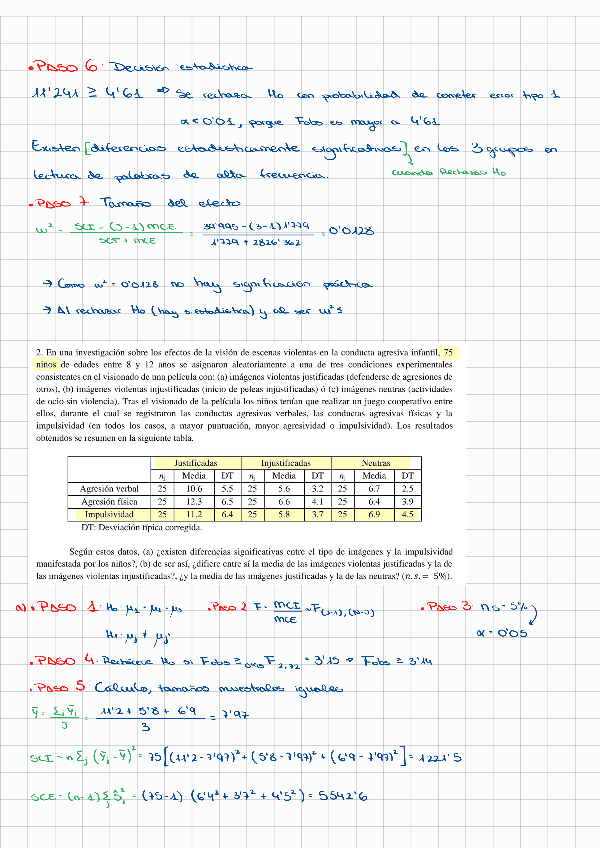 • PASO 6: Decisión estadística
11'241 ≥ 4'61 ⇒ Se rechaza Ho con probabilidad de cometer error tipo 1
α < 0'01, porque Fobs es mayor a 4'61
Existen [diferencias estadísticamente significativas] en los 3 grupos en
lectura de palabras de alta frecuencia.
cuando Rechazas Ho
• PASO 7 Tamaño del efecto
w² = SCI - (J-1) MCE / SCT + MCE = 39'995 - (3-1) 1'779 / 1'779 + 2826'362 = 0'0128
→ Como w² = 0'0128 no hay significación práctica
→ Al rechazar Ho (hay s. estadística) y al ser w² s
2. En una investigación sobre los efectos de la visión de escenas violentas en la conducta agresiva infantil, 75
niños de edades entre 8 y 12 años se asignaron aleatoriamente a una de tres condiciones experimentales
consistentes en el visionado de una película con: (a) imágenes violentas justificadas (defenderse de agresiones de
otros), (b) imágenes violentas injustificadas (inicio de peleas injustificadas) ó (c) imágenes neutras (actividades
de ocio sin violencia). Tras el visionado de la película los niños tenían que realizar un juego cooperativo entre
ellos, durante el cual se registraron las conductas agresivas verbales, las conductas agresivas físicas y la
impulsividad (en todos los casos, a mayor puntuación, mayor agresividad o impulsividad). Los resultados
obtenidos se resumen en la siguiente tabla.
Justificadas Injustificadas Neutras
nj Media DT nj Media DT nj Media DT
Agresión verbal 25 10.6 5.5 25 5.6 3.2 25 6.7 2.5
Agresión física 25 12.3 6.5 25 6.6 4.1 25 6.4 3.9
Impulsividad 25 11.2 6.4 25 5.8 3.7 25 6.9 4.5
DT: Desviación típica corregida.
Según estos datos, (a) ¿existen diferencias significativas entre el tipo de imágenes y la impulsividad
manifestada por los niños?, (b) de ser así, ¿difiere entre sí la media de las imágenes violentas justificadas y la de
las imágenes violentas injustificadas?, ¿y la media de las imágenes justificadas y la de las neutras? (n.s. = 5%).
a) • PASO 1: Ho: μ1 = μ2 = μ3 • PASO 2 F = MCI / MCE ~ F(J-1), (N-J) • PASO 3: ns = 5%
H1: μj ≠ μj' α = 0'05
• PASO 4: Rechácese Ho si Fobs ≥ 0'95 F 2,72 = 3'15 ⇒ Fobs ≥ 3'14
• PASO 5: Cálculo, tamaños muestrales iguales
Ȳ = Σj Ȳj / J = 11'2 + 5'8 + 6'9 / 3 = 7'97
SCI = n Σj (Ȳj - Ȳ)² = 75 [(11'2 - 7'97)² + (5'8 - 7'97)² + (6'9 - 7'97)²] = 1221'5
SCE = (n-1) Σj Ŝj² = (75-1) · (6'4² + 3'7² + 4'5²) = 5542'6